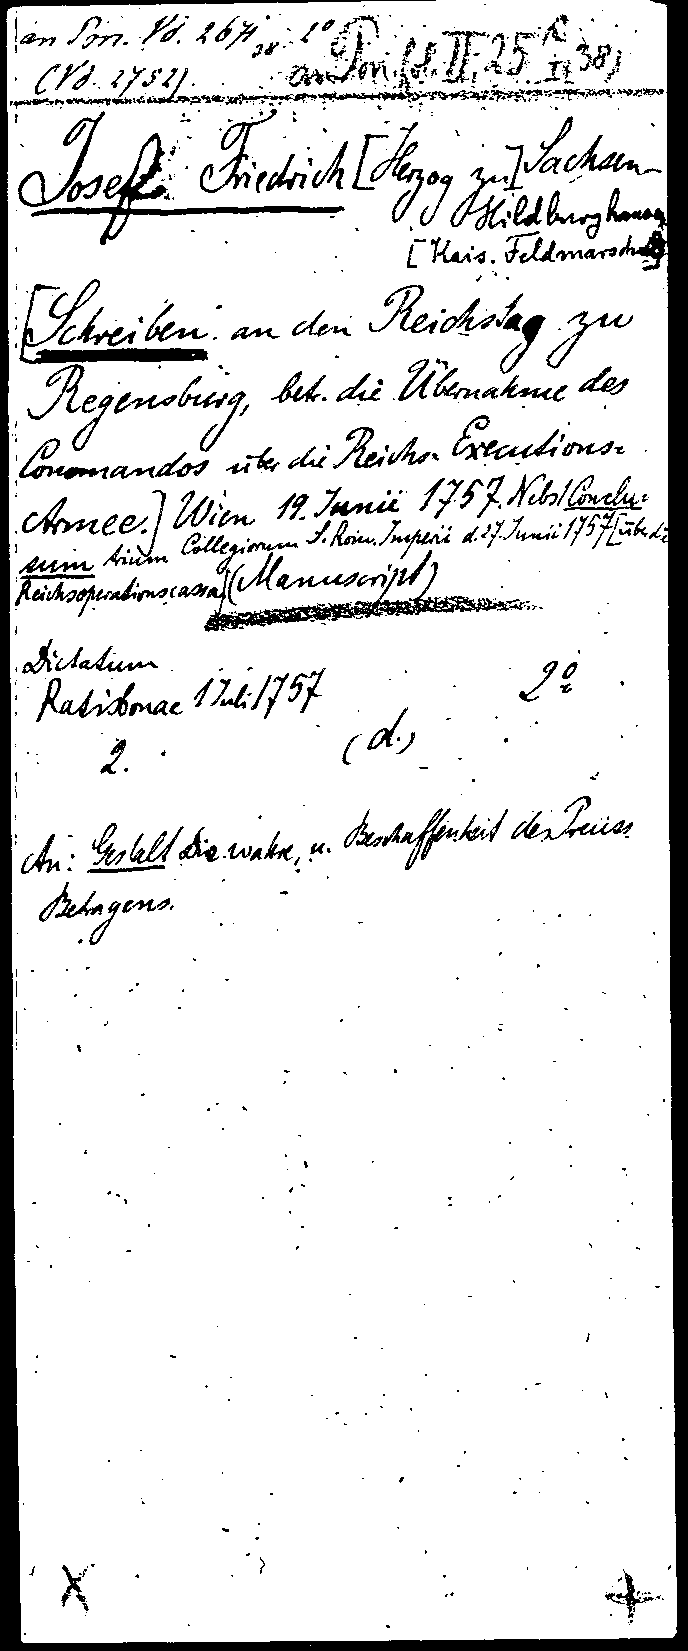 an Pon. Vd. 2671 38 2°
(Vd. 2752). an Pon. fol. II, 25 R II 38)
Josef Friedrich [Herzog zu] Sachsen-
Hildburghausen
[Kais. Feldmarschall]
[Schreiben an den Reichstag zu
Regensburg, betr. die Übernahme des
Commandos über die Reichs- Executions-
Armee.] Wien 19. Junii 1757. Nebst Conclu-
sum trium Collegiorum S. Rom. Imperii d. 27. Junii 1757 [über die
Reichsoperationscassa] (Manuscript)
Dictatum
Ratisbonae 1 Juli 1757 2°
2. (d.)
An: Gestalt Die wahre, u. Beschaffenheit des Preuss.
Betragens.
X +